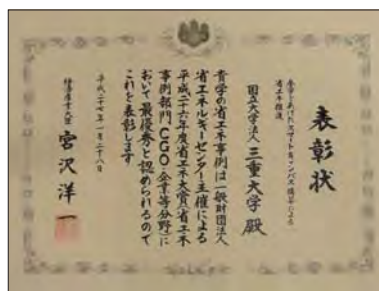 表彰状
全学をあげたスマートキャンパス構築による
省エネ推進
国立大学法人
三重大学殿
貴学の省エネ事例は一般財団法人
省エネルギーセンター主催による
平成二十六年度省エネ大賞(省エネ
事例部門CGO・企業等分野)に
おいて最優秀と認められるので
これを表彰します
平成二十七年一月二十八日
経済産業大臣
宮沢洋一